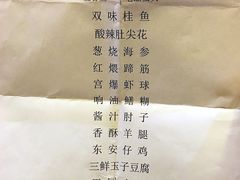 双味桂鱼
酸辣肚尖花
葱烧海参
红煨蹄筋
宫爆虾球
响油鳝糊
酱汁肘子
香酥羊腿
东安仔鸡
三鲜玉子豆腐